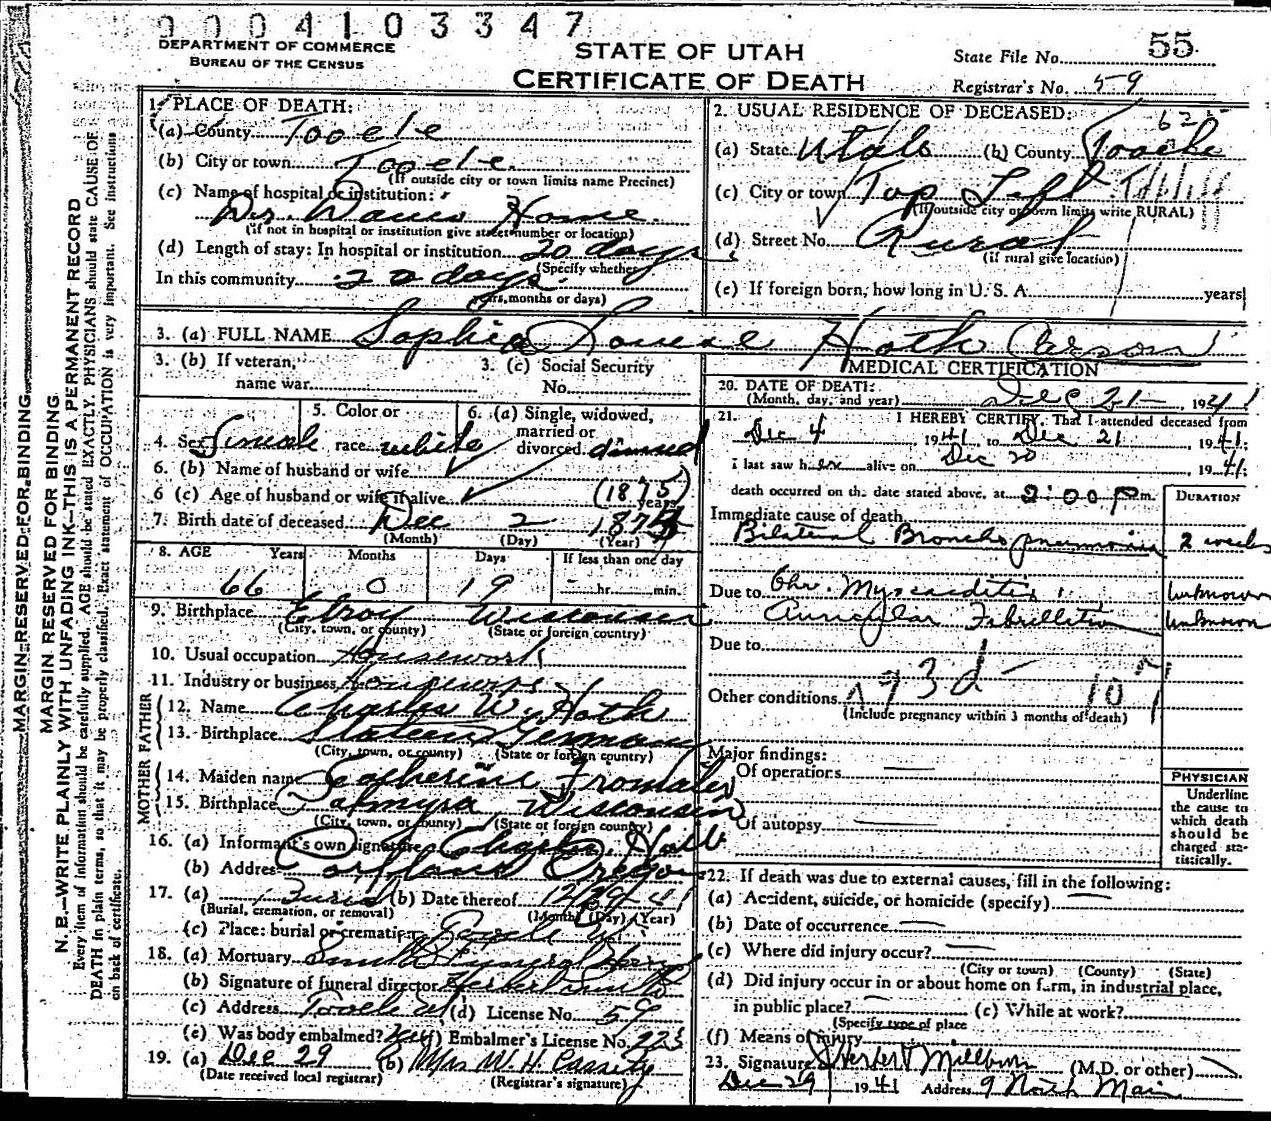 0004103347
DEPARTMENT OF COMMERCE
BUREAU OF THE CENSUS
STATE OF UTAH
CERTIFICATE OF DEATH
State File No. 55
Registrar's No. 59
MARGIN RESERVED FOR BINDING
MARGIN RESERVED FOR BINDING.
N. B.—WRITE PLAINLY WITH UNFADING INK—THIS IS A PERMANENT RECORD
Every item of information should be carefully supplied. AGE should be stated EXACTLY. PHYSICIANS should state CAUSE OF
DEATH in plain terms, so that it may be properly classified. Exact statement of OCCUPATION is very important. See instructions
on back of certificate.
1. PLACE OF DEATH:
(a) County Tooele
(b) City or town Tooele
(If outside city or town limits name Precinct)
(c) Name of hospital or institution:
Home
(if not in hospital or institution give street number or location)
(d) Length of stay: In hospital or institution 20 days
(Specify whether
In this community 20 days
years, months or days)
2. USUAL RESIDENCE OF DECEASED:
(a) State Utah (b) County Tooele
(c) City or town
(If outside city or town limits write RURAL)
(d) Street No. Rural
(if rural give location)
(e) If foreign born, how long in U. S. A. years
3. (a) FULL NAME Sophia Louise Hoth Carson
3. (b) If veteran, name war
3. (c) Social Security No.
4. Sex Female
5. Color or race white
6. (a) Single, widowed, married or divorced
6. (b) Name of husband or wife
6 (c) Age of husband or wife if alive years
(1875)
7. Birth date of deceased Dec 2
(Month) (Day) (Year)
8. AGE Years Months Days If less than one day
66 0 19 hr. min.
9. Birthplace Elroy Wisconsin
(City, town, or county) (State or foreign country)
10. Usual occupation Housework
11. Industry or business
FATHER
12. Name Charles W. Hoth
13. Birthplace Germany
(City, town, or county) (State or foreign country)
MOTHER
14. Maiden name Catherine
15. Birthplace Palmyra Wisconsin
(City, town, or county) (State or foreign country)
16. (a) Informant's own signature Charles Hoth
(b) Address Oregon
17. (a) Burial (b) Date thereof
(Burial, cremation, or removal) (Month) (Day) (Year)
(c) Place: burial or cremation Tooele Ut.
18. (a) Mortuary Smith Funeral Home
(b) Signature of funeral director Herbert Smith
(c) Address Tooele Ut (d) License No. 59
(e) Was body embalmed? Embalmer's License No. 223
19. (a) Dec 29 (b) Mrs W. H. Cassity
(Date received local registrar) (Registrar's signature)
MEDICAL CERTIFICATION
20. DATE OF DEATH:
(Month, day, and year) Dec 21 1941
21. I HEREBY CERTIFY, That I attended deceased from
Dec 4 1941, to Dec 21 1941:
I last saw her alive on Dec 20, 1941:
death occurred on the date stated above, at 2:00 P m.
DURATION
Immediate cause of death
Bilateral Broncho pneumonia 2 weeks
Due to Chr. Myocarditis unknown
Auricular Fibrillation unknown
Due to
Other conditions 93d 107
(Include pregnancy within 3 months of death)
Major findings:
Of operations
Of autopsy
PHYSICIAN
Underline
the cause to
which death
should be
charged sta-
tistically.
22. If death was due to external causes, fill in the following:
(a) Accident, suicide, or homicide (specify)
(b) Date of occurrence
(c) Where did injury occur?
(City or town) (County) (State)
(d) Did injury occur in or about home on farm, in industrial place,
in public place? (e) While at work?
(Specify type of place
(f) Means of injury
23. Signature Herbert Millburn (M.D. or other)
Dec 29 1941 Address 9 North Main